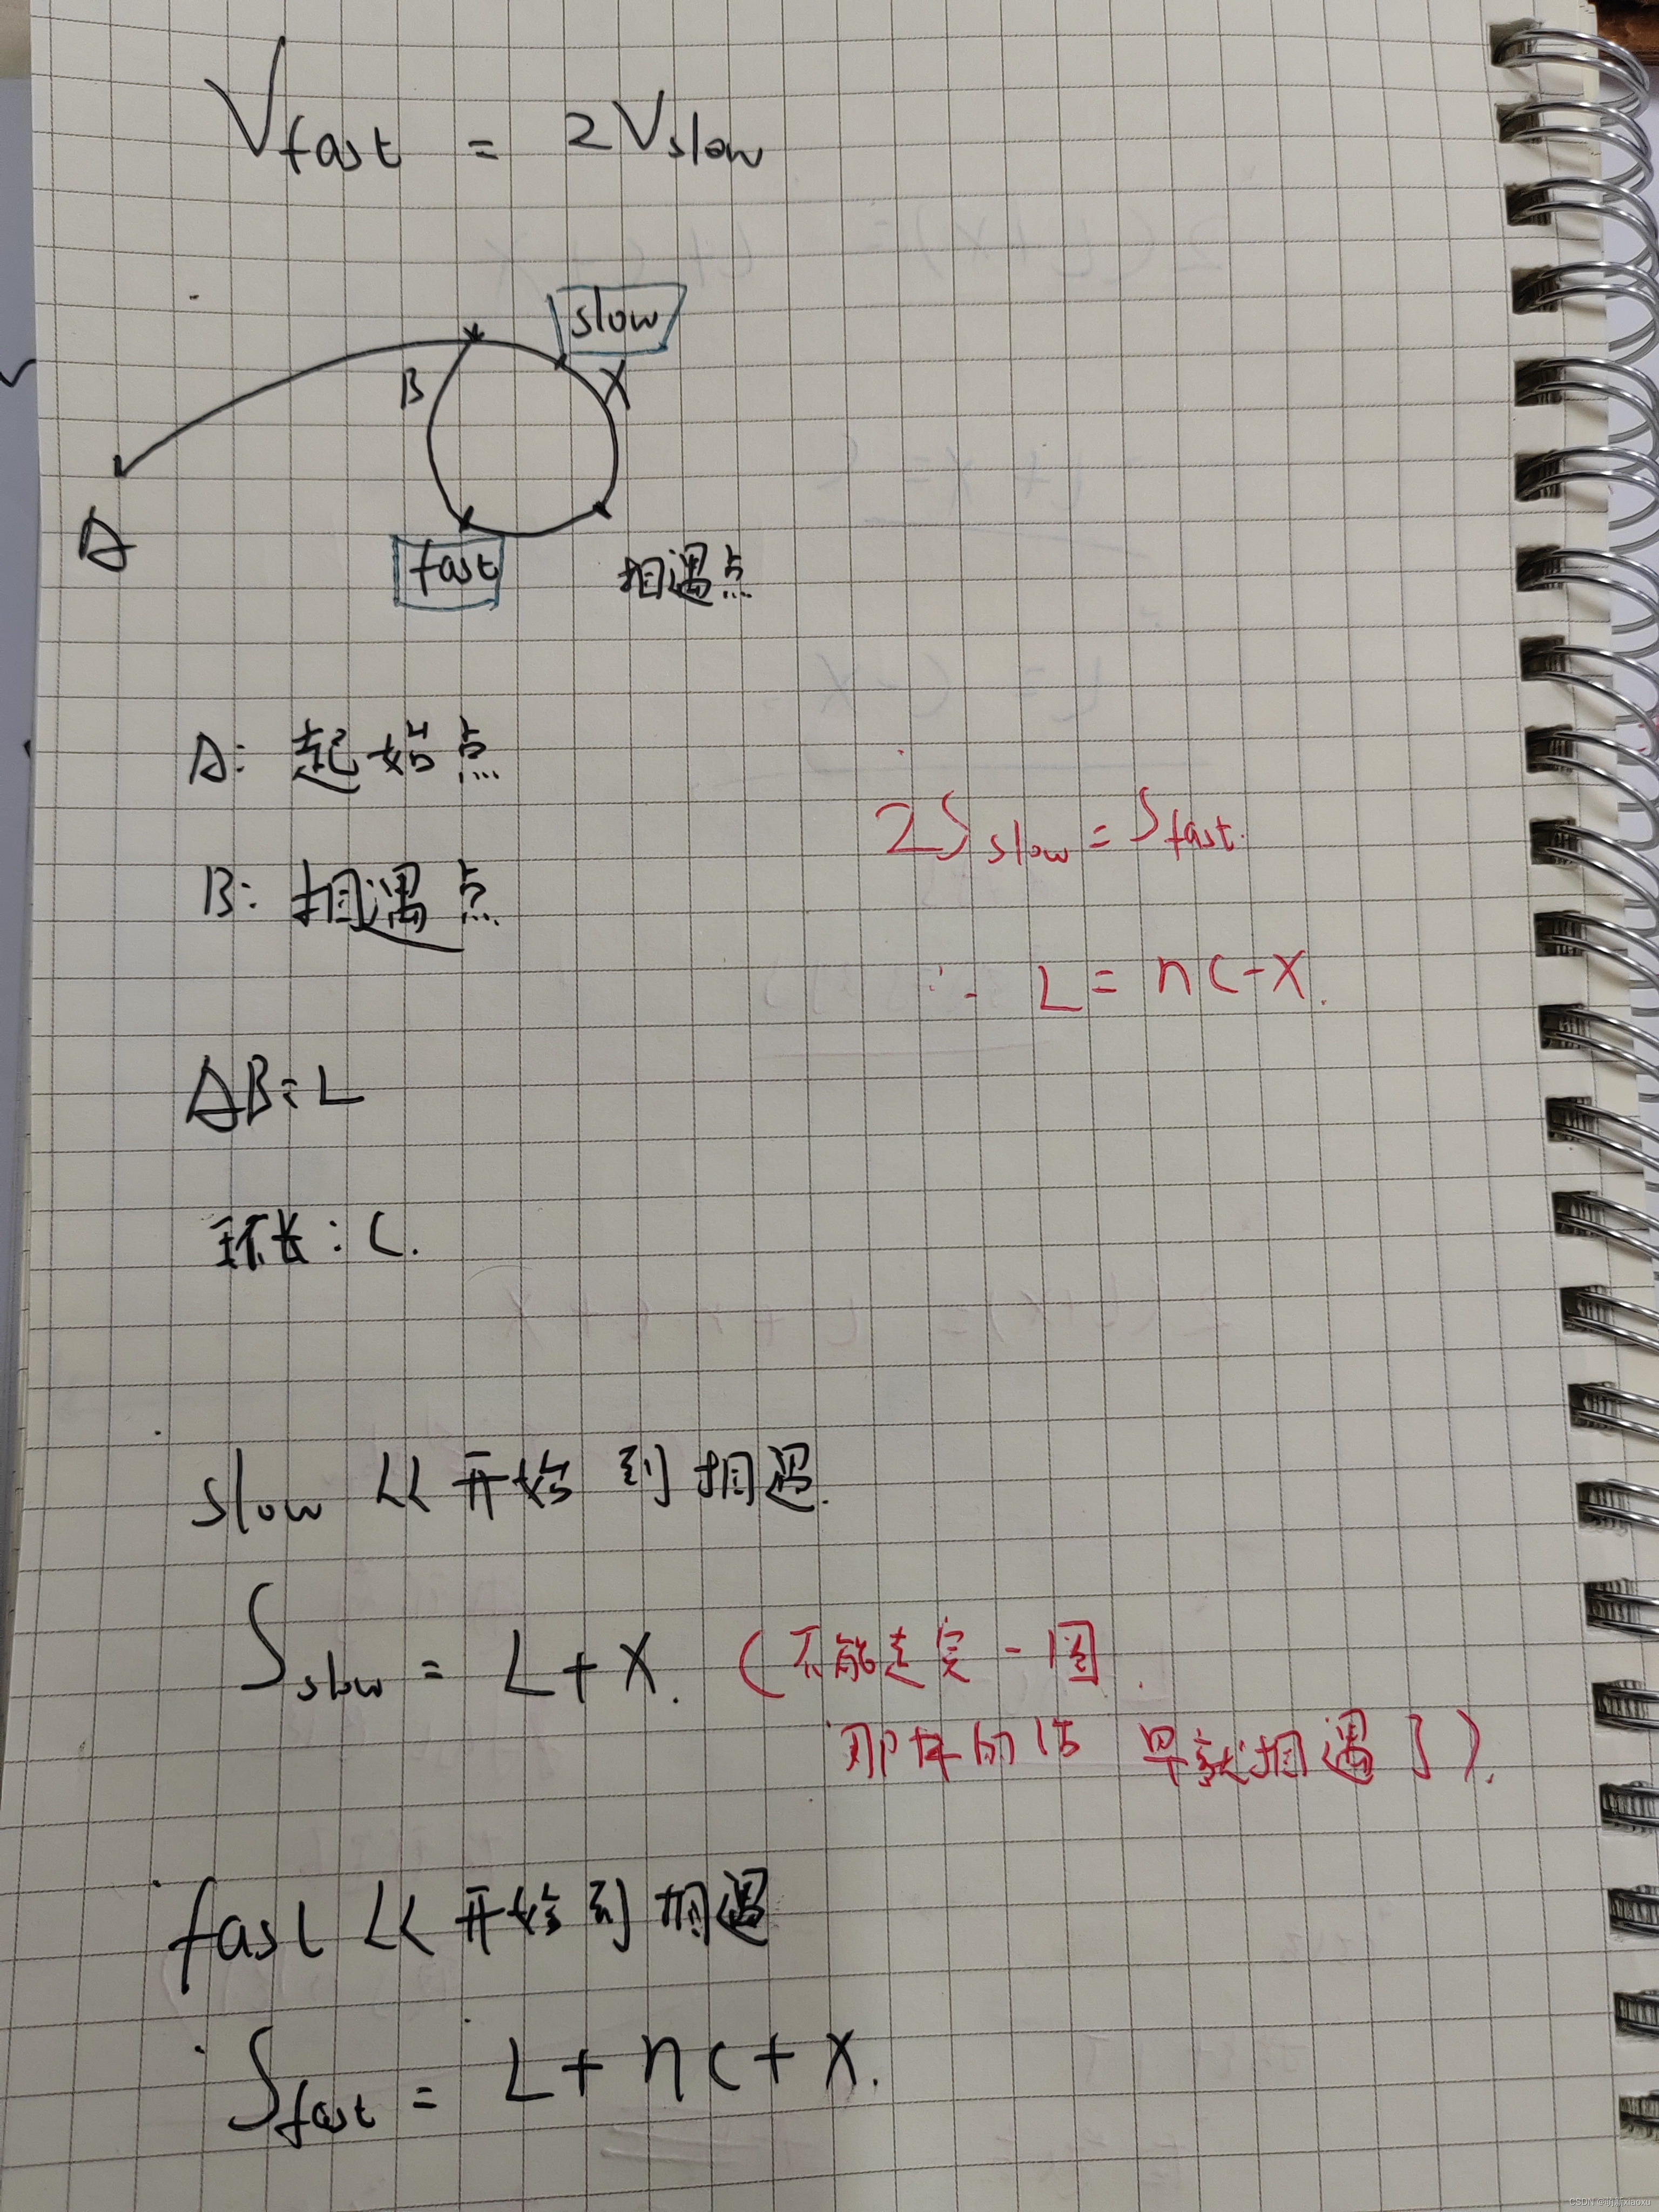 V fast = 2V slow
slow
B
X
A
fast
相遇点
A: 起始点
B: 相遇点
2S slow = S fast.
∴ L = nC-X.
AB: L
环长: C.
slow 从开始到相遇.
S slow = L+X. (不能走完一圈.
那样的话 早就相遇了).
fast 从开始到相遇
S fast = L+nC+X.